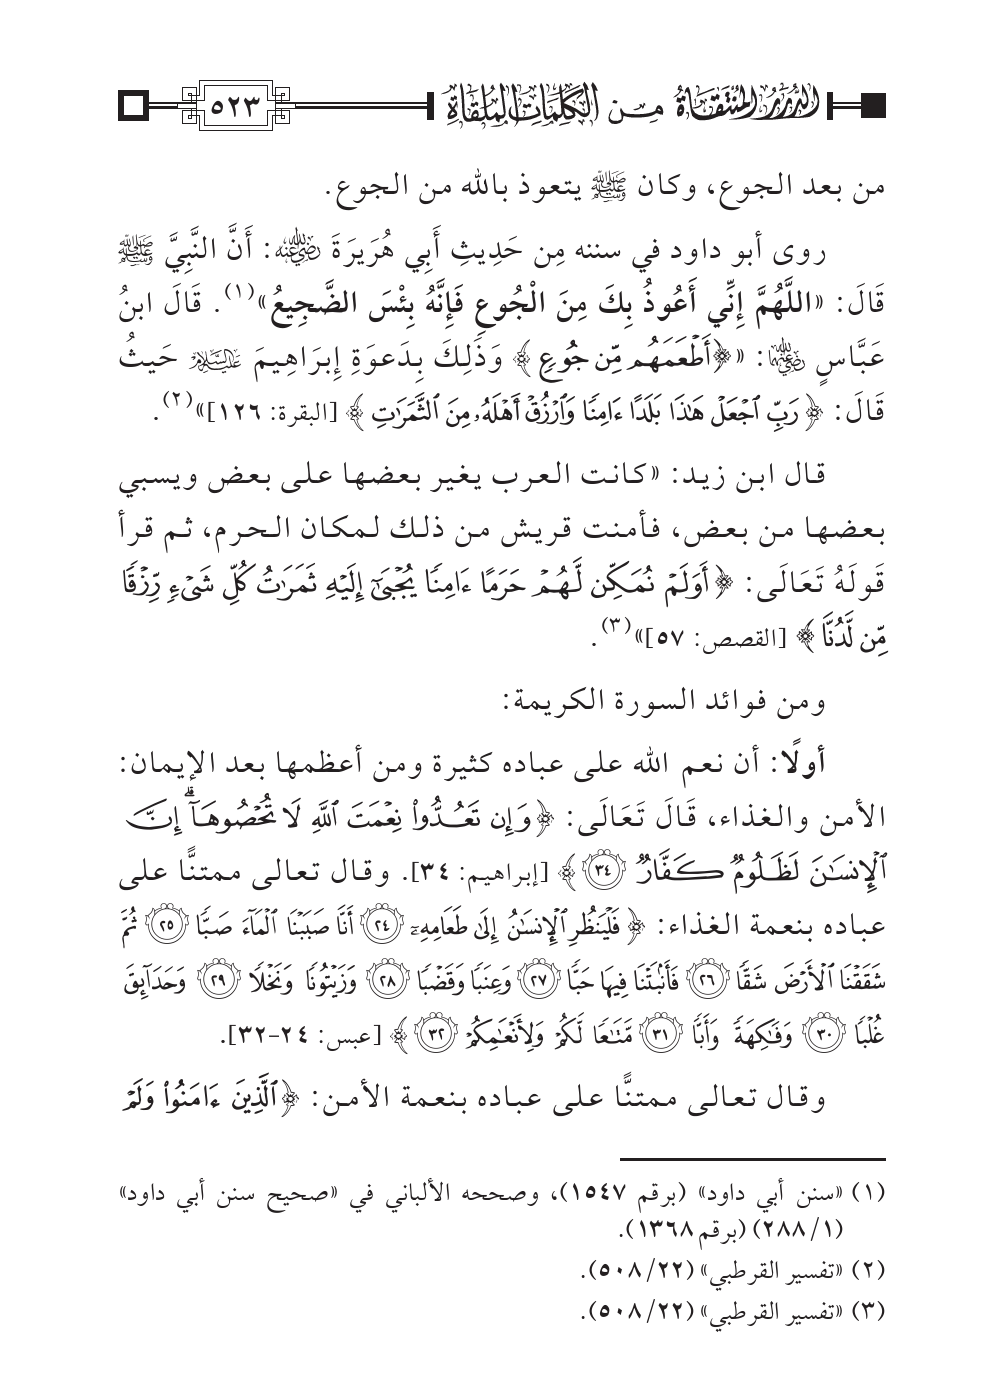 الدرر المنتقاة من الكلمات الملقاة
٥٢٣
من بعد الجوع، وكان ﷺ يتعوذ بالله من الجوع.
روى أبو داود في سننه مِن حَدِيثِ أَبِي هُرَيرَةَ رضي الله عنه: أَنَّ النَّبِيَّ ﷺ
قَالَ: «اللَّهُمَّ إِنِّي أَعُوذُ بِكَ مِنَ الْجُوعِ فَإِنَّهُ بِئْسَ الضَّجِيعُ»(١). قَالَ ابنُ
عَبَّاسٍ رضي الله عنهما: «﴿أَطْعَمَهُم مِّن جُوعٍ﴾ وَذَلِكَ بِدَعوَةِ إِبرَاهِيمَ عليه السلام حَيثُ
قَالَ: ﴿رَبِّ ٱجْعَلْ هَٰذَا بَلَدًا ءَامِنًا وَٱرْزُقْ أَهْلَهُۥ مِنَ ٱلثَّمَرَٰتِ﴾ [البقرة: ١٢٦]»(٢).
قال ابن زيد: «كانت العرب يغير بعضها على بعض ويسبي
بعضها من بعض، فأمنت قريش من ذلك لمكان الحرم، ثم قرأ
قَولَهُ تَعَالَى: ﴿أَوَلَمْ نُمَكِّن لَّهُمْ حَرَمًا ءَامِنًا يُجْبَىٰٓ إِلَيْهِ ثَمَرَٰتُ كُلِّ شَىْءٍ رِّزْقًا
مِّن لَّدُنَّا﴾ [القصص: ٥٧]»(٣).
ومن فوائد السورة الكريمة:
أولًا: أن نعم الله على عباده كثيرة ومن أعظمها بعد الإيمان:
الأمن والغذاء، قَالَ تَعَالَى: ﴿وَإِن تَعُدُّوا۟ نِعْمَتَ ٱللَّهِ لَا تُحْصُوهَآ ۗ إِنَّ
ٱلْإِنسَٰنَ لَظَلُومٌ كَفَّارٌ ٣٤﴾ [إبراهيم: ٣٤]. وقال تعالى ممتنًّا على
عباده بنعمة الغذاء: ﴿فَلْيَنظُرِ ٱلْإِنسَٰنُ إِلَىٰ طَعَامِهِۦٓ ٢٤ أَنَّا صَبَبْنَا ٱلْمَآءَ صَبًّا ٢٥ ثُمَّ
شَقَقْنَا ٱلْأَرْضَ شَقًّا ٢٦ فَأَنۢبَتْنَا فِيهَا حَبًّا ٢٧ وَعِنَبًا وَقَضْبًا ٢٨ وَزَيْتُونًا وَنَخْلًا ٢٩ وَحَدَآئِقَ
غُلْبًا ٣٠ وَفَٰكِهَةً وَأَبًّا ٣١ مَّتَٰعًا لَّكُمْ وَلِأَنْعَٰمِكُمْ ٣٢﴾ [عبس: ٢٤-٣٢].
وقال تعالى ممتنًّا على عباده بنعمة الأمن: ﴿ٱلَّذِينَ ءَامَنُوا۟ وَلَمْ
(١) «سنن أبي داود» (برقم ١٥٤٧)، وصححه الألباني في «صحيح سنن أبي داود»
(١/ ٢٨٨) (برقم ١٣٦٨).
(٢) «تفسير القرطبي» (٢٢/ ٥٠٨).
(٣) «تفسير القرطبي» (٢٢/ ٥٠٨).